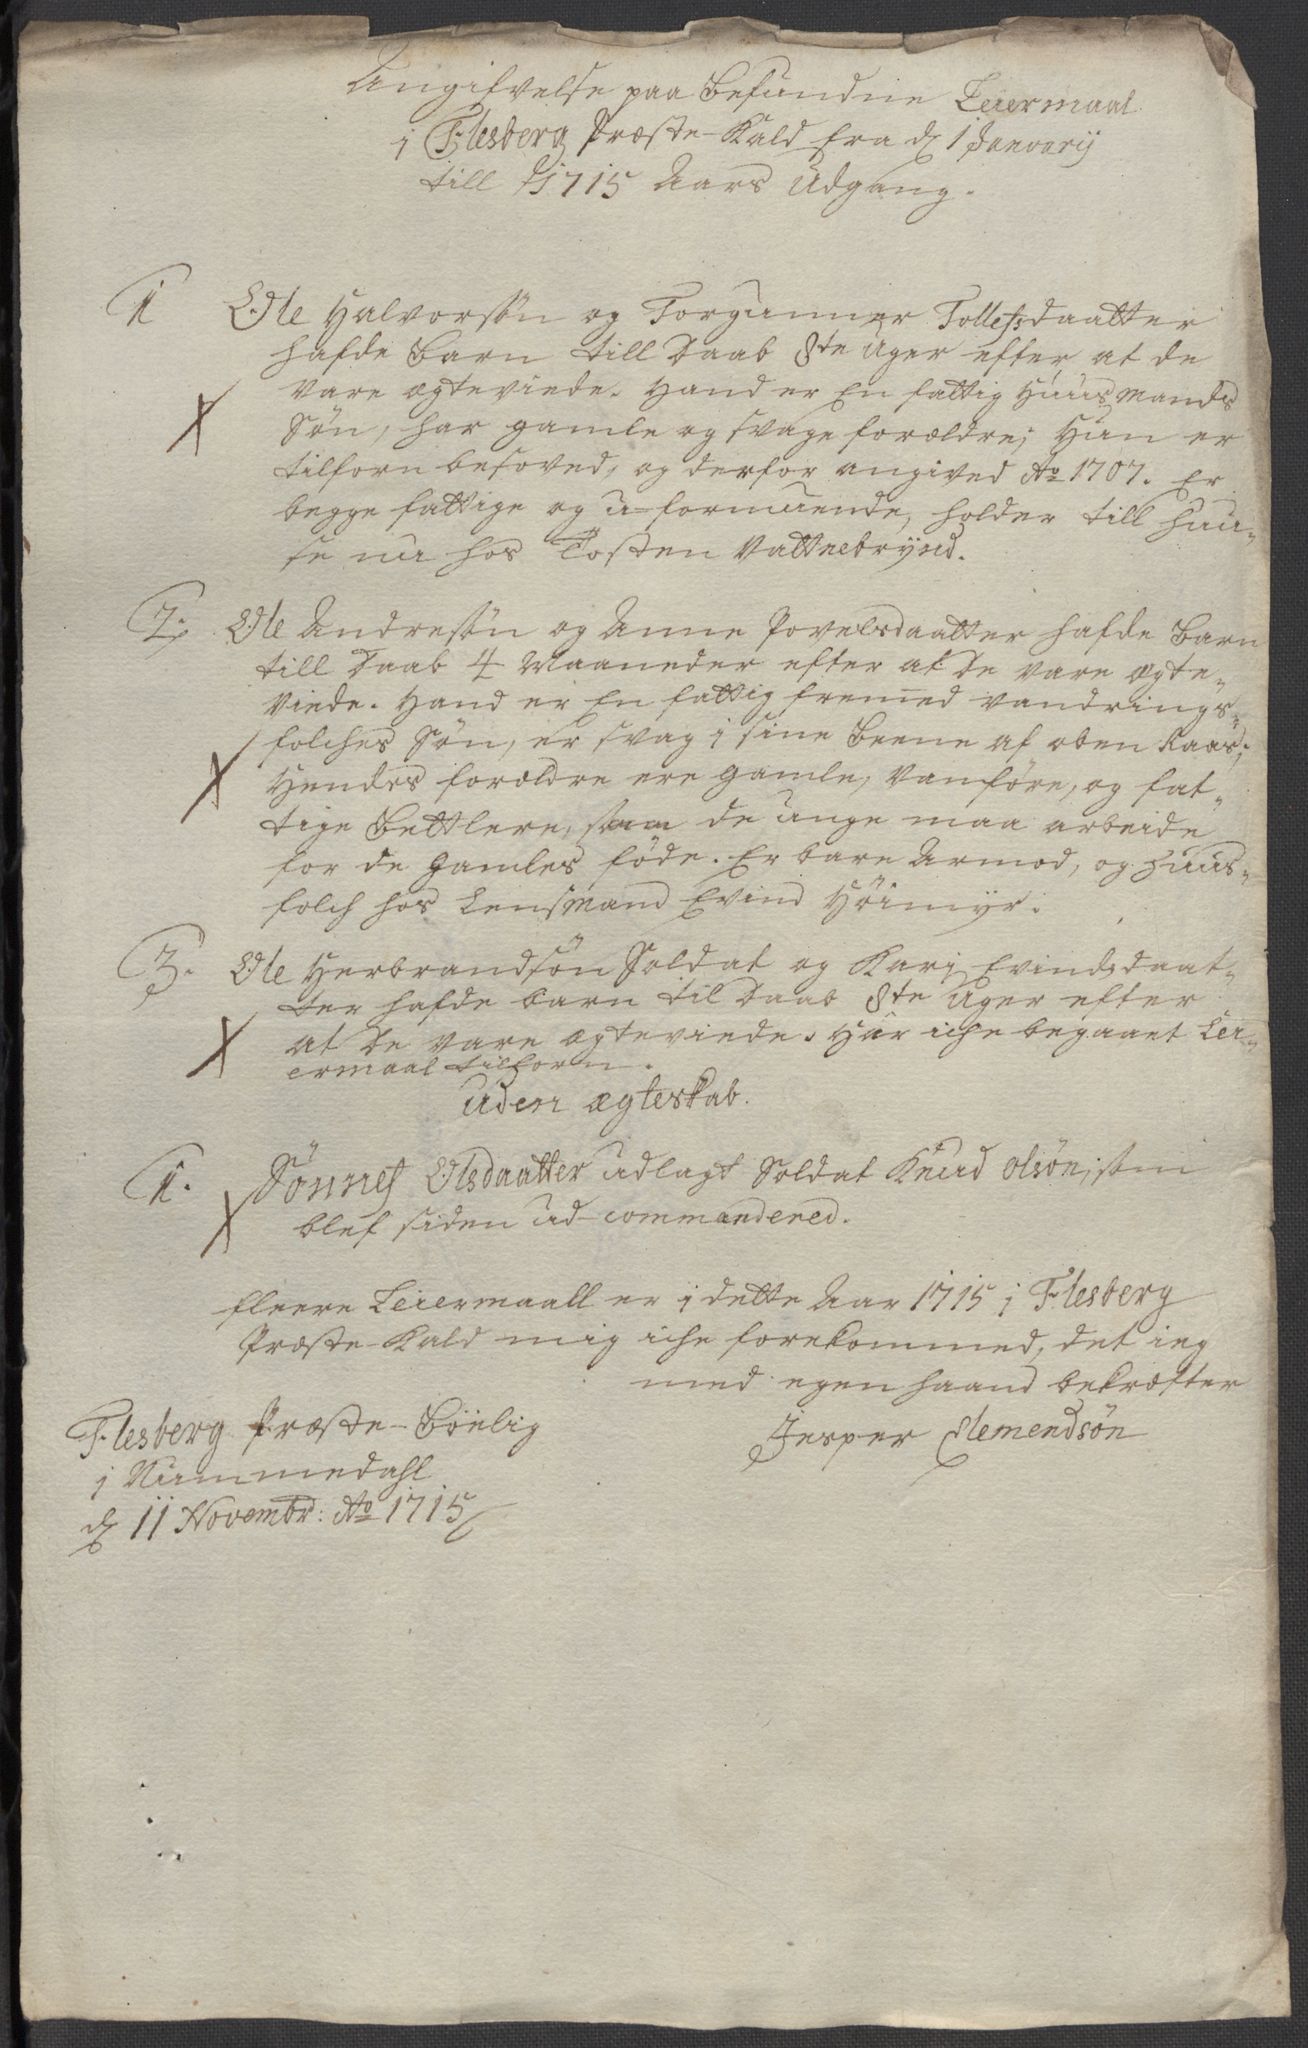 Angifvelse paa Befundne Leiermaal
i Flesberg Præste-Kald fra d 1 Januarij
till 1715 Aars Udgang.
1 Ole Halvorsön og Torgunner Tollefsdaatter
hafde Barn till Daab 8te Uger efter at de
vare ægteviede. Hand er En fattig Huusmands
Søn, har gamle og svage forældre; Hun er
tilforn besoved, og derfor angived Ao 1707. Er
begge fattige og u-formuende, holder till Huu-
se nu hos Tosten Vattnebrÿnd.
2. Ole Andresön og Anne Povelsdaatter hafde Barn
till Daab 4 Maaneder efter at De vare ægte-
viede. Hand er En fattig fremed vandrings-
folches Søn, er svag i sine Beene af oben Saar;
Hendes forældre ere gamle, vanföre, og fat-
tige Bettlere, som de unge maa arbeide
for de gamles føde. Er bare Armod, og Huus-
folch hos Lensmand Evind Höimÿr.
3. Ole Herbrandsön Soldat og Kari Evindsdaat-
ter hafde barn til Daab 8te Uger efter
at De vare ægteviede. Har iche begaaet Lei-
ermaal tilforn.
uden ægteskab.
1. Sönnef Olsdaatter udlagt Soldat Knud Olsön; som
blef siden ud-commandered.
fleere Leiermaall er i dette Aar 1715 i Flesberg
Præste-Kald mig iche forekommed, det ieg
med egen haand bekræfter
Jesper Clemendsön
Flesberg Præste-Böelig
i Nummedahl
d 11 Novembr: Ao 1715